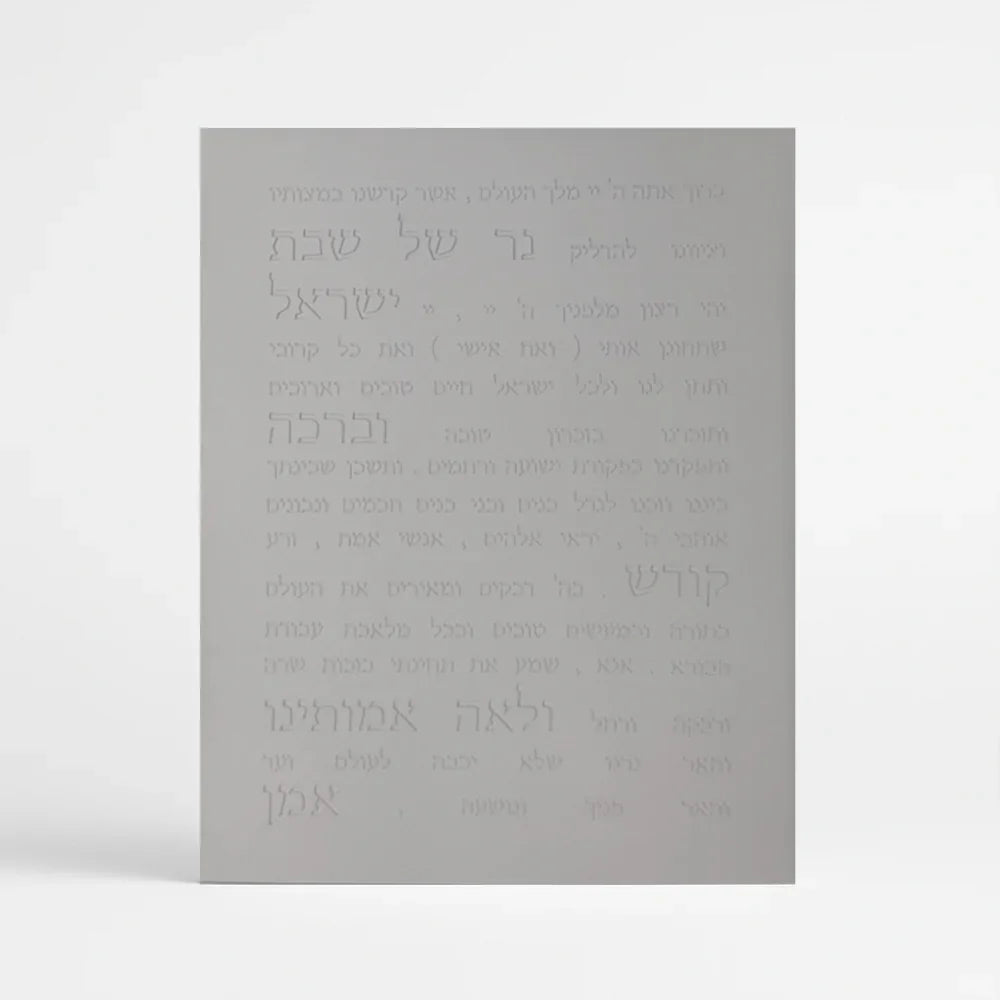 ברוך אתה ה' יי מלך העולם , אשר קדשנו במצותיו
וציוונו להדליק נר של שבת
יהי רצון מלפניך ה' יי , יי ישראל
שתחונן אותי ( ואת אישי ) ואת כל קרובי
ותתן לנו ולכל ישראל חיים טובים וארוכים
ותזכרינו בזכרון טובה וברכה
ותפקדנו בפקודת ישועה ורחמים . ותשכן שכינתך
בינינו וזכנו לגדל בנים ובני בנים חכמים ונבונים
אוהבי ה' , יראי אלהים , אנשי אמת , זרע
קודש . בה' דבקים ומאירים את העולם
בתורה ובמעשים טובים ובכל מלאכת עבודת
הבורא . אנא , שמע את תחינתי בזכות שרה
ורבקה ורחל ולאה אמותינו
והאר נרינו שלא יכבה לעולם ועד
והאר פניך ונושעה , אמן